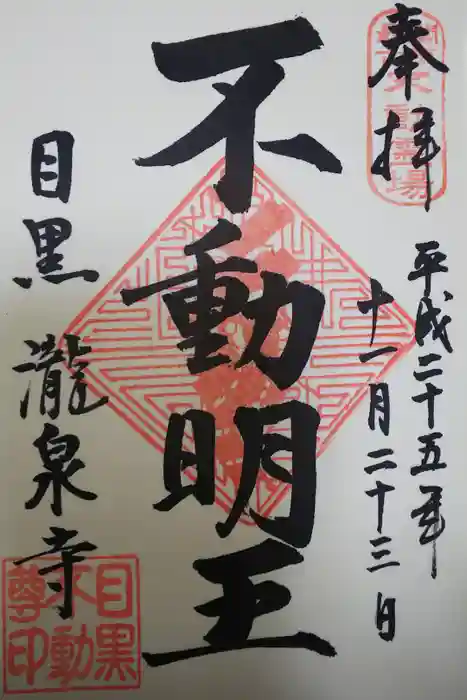 奉拝
平成二十五年
十一月二十三日
不動明王
目黒 瀧泉寺
目黒
不動
尊印